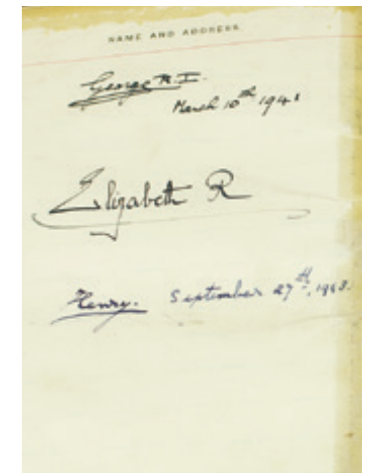 NAME AND ADDRESS
George R.I.
March 10th 194
Elizabeth R
Henry. September 27th, 1943.